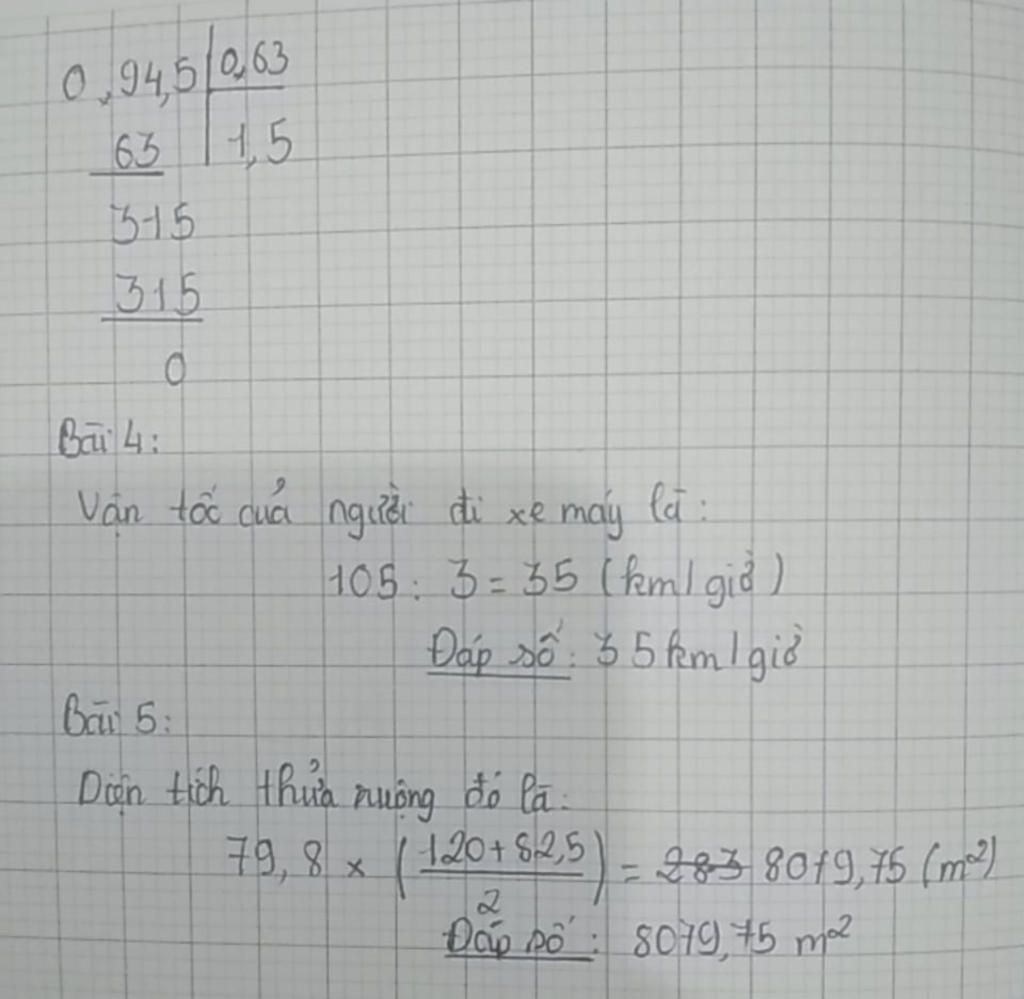 0,94,5 | 0,63
63 | 1,5
315
315
0
Bài 4:
Vận tốc quả người đi xe máy là:
105 : 3 = 35 (km/giờ)
Đáp số: 35km/giờ
Bài 5:
Diện tích thửa ruộng đó là:
79,8 × (120+82,5 / 2) = 283 8079,75 (m²)
Đáp số: 8079,75 m²